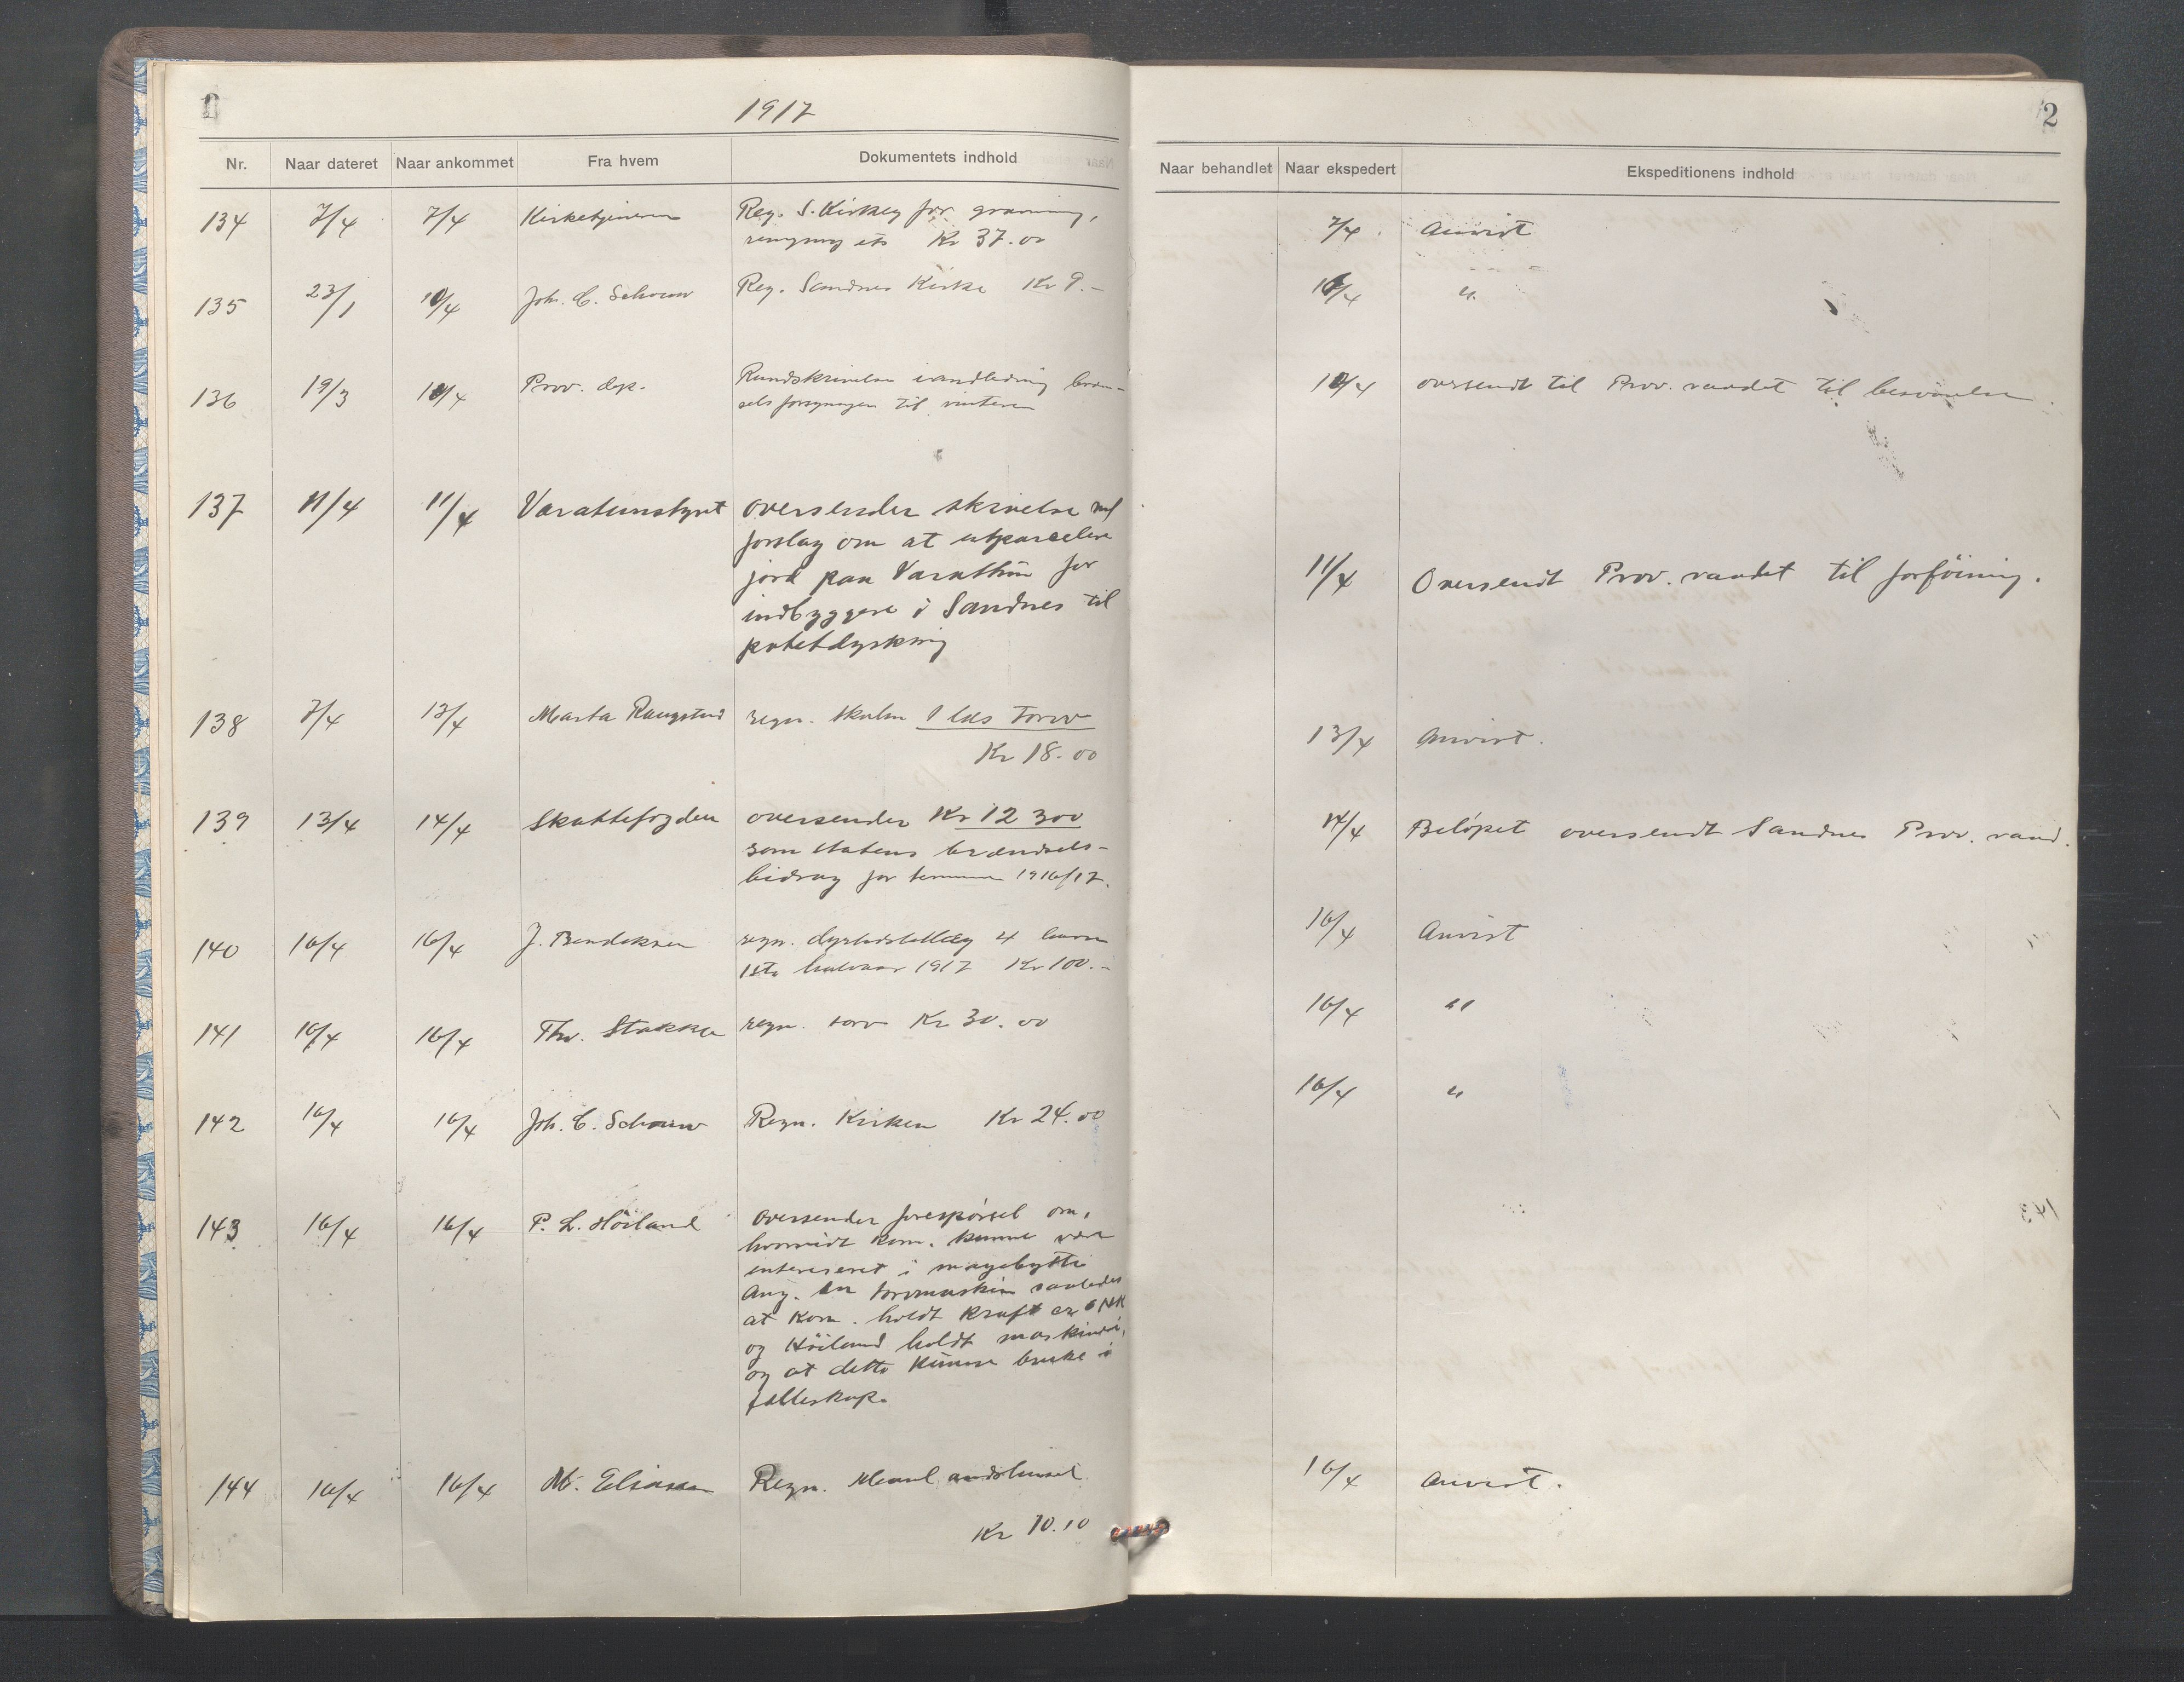 1917
2
Nr. Naar dateret Naar ankommet Fra hvem Dokumentets indhold
Naar behandlet Naar ekspedert Ekspeditionens indhold
134 7/4 7/4 Kirketjeneren Reg. S. Kirkeg for graving,
rengjøring etc Kr 37.00
7/4 Anvist
135 23/1 10/4 Joh. C. Schouw Reg. Sandnes Kirke Kr 9.-
10/4 "
136 19/3 10/4 Prov. dep. Rundskrivelse i andledning bræn-
selsforsyningen til vinteren
10/4 oversendt til Prov. raadet til besvarelse
137 11/4 11/4 Varatunstyret oversender skrivelse med
forslag om at utparcelere
jord paa Varathun for
indbyggere i Sandnes til
potetdyrkning
11/4 Oversendt Prov. raadet til forföining.
138 7/4 13/4 Marta regn. skolen 1 læs torv
Kr 18.00
13/4 Anvist.
139 13/4 14/4 Skattefogden oversender Kr 12 300
som statens brændsels-
bidrag for terminen 1916/17.
14/4 Belöpet oversendt Sandnes Prov. raad.
140 16/4 16/4 J. Bendiksen regn. dyrtidstillæg 4 barn
1ste halvaar 1917 Kr 100.-
16/4 Anvist
141 16/4 16/4 Thv. Stokka regn. torv Kr 30.00
16/4 "
142 16/4 16/4 Joh. C. Schouw Regn. Kirken Kr 24.00
16/4 "
143 16/4 16/4 P. L. Höiland Oversender forespörsel om,
hvorvidt Kom. kunne være
interesseret i
Ang. en torvmaskin saaledes
at Kom. holdt kraft ca 6 HK
og Höiland holdt maskineri,
og at dette kunne bruke i
fælleskap.
144 16/4 16/4 M. Eliassen Regn.
Kr 10.10
16/4 Anvist.